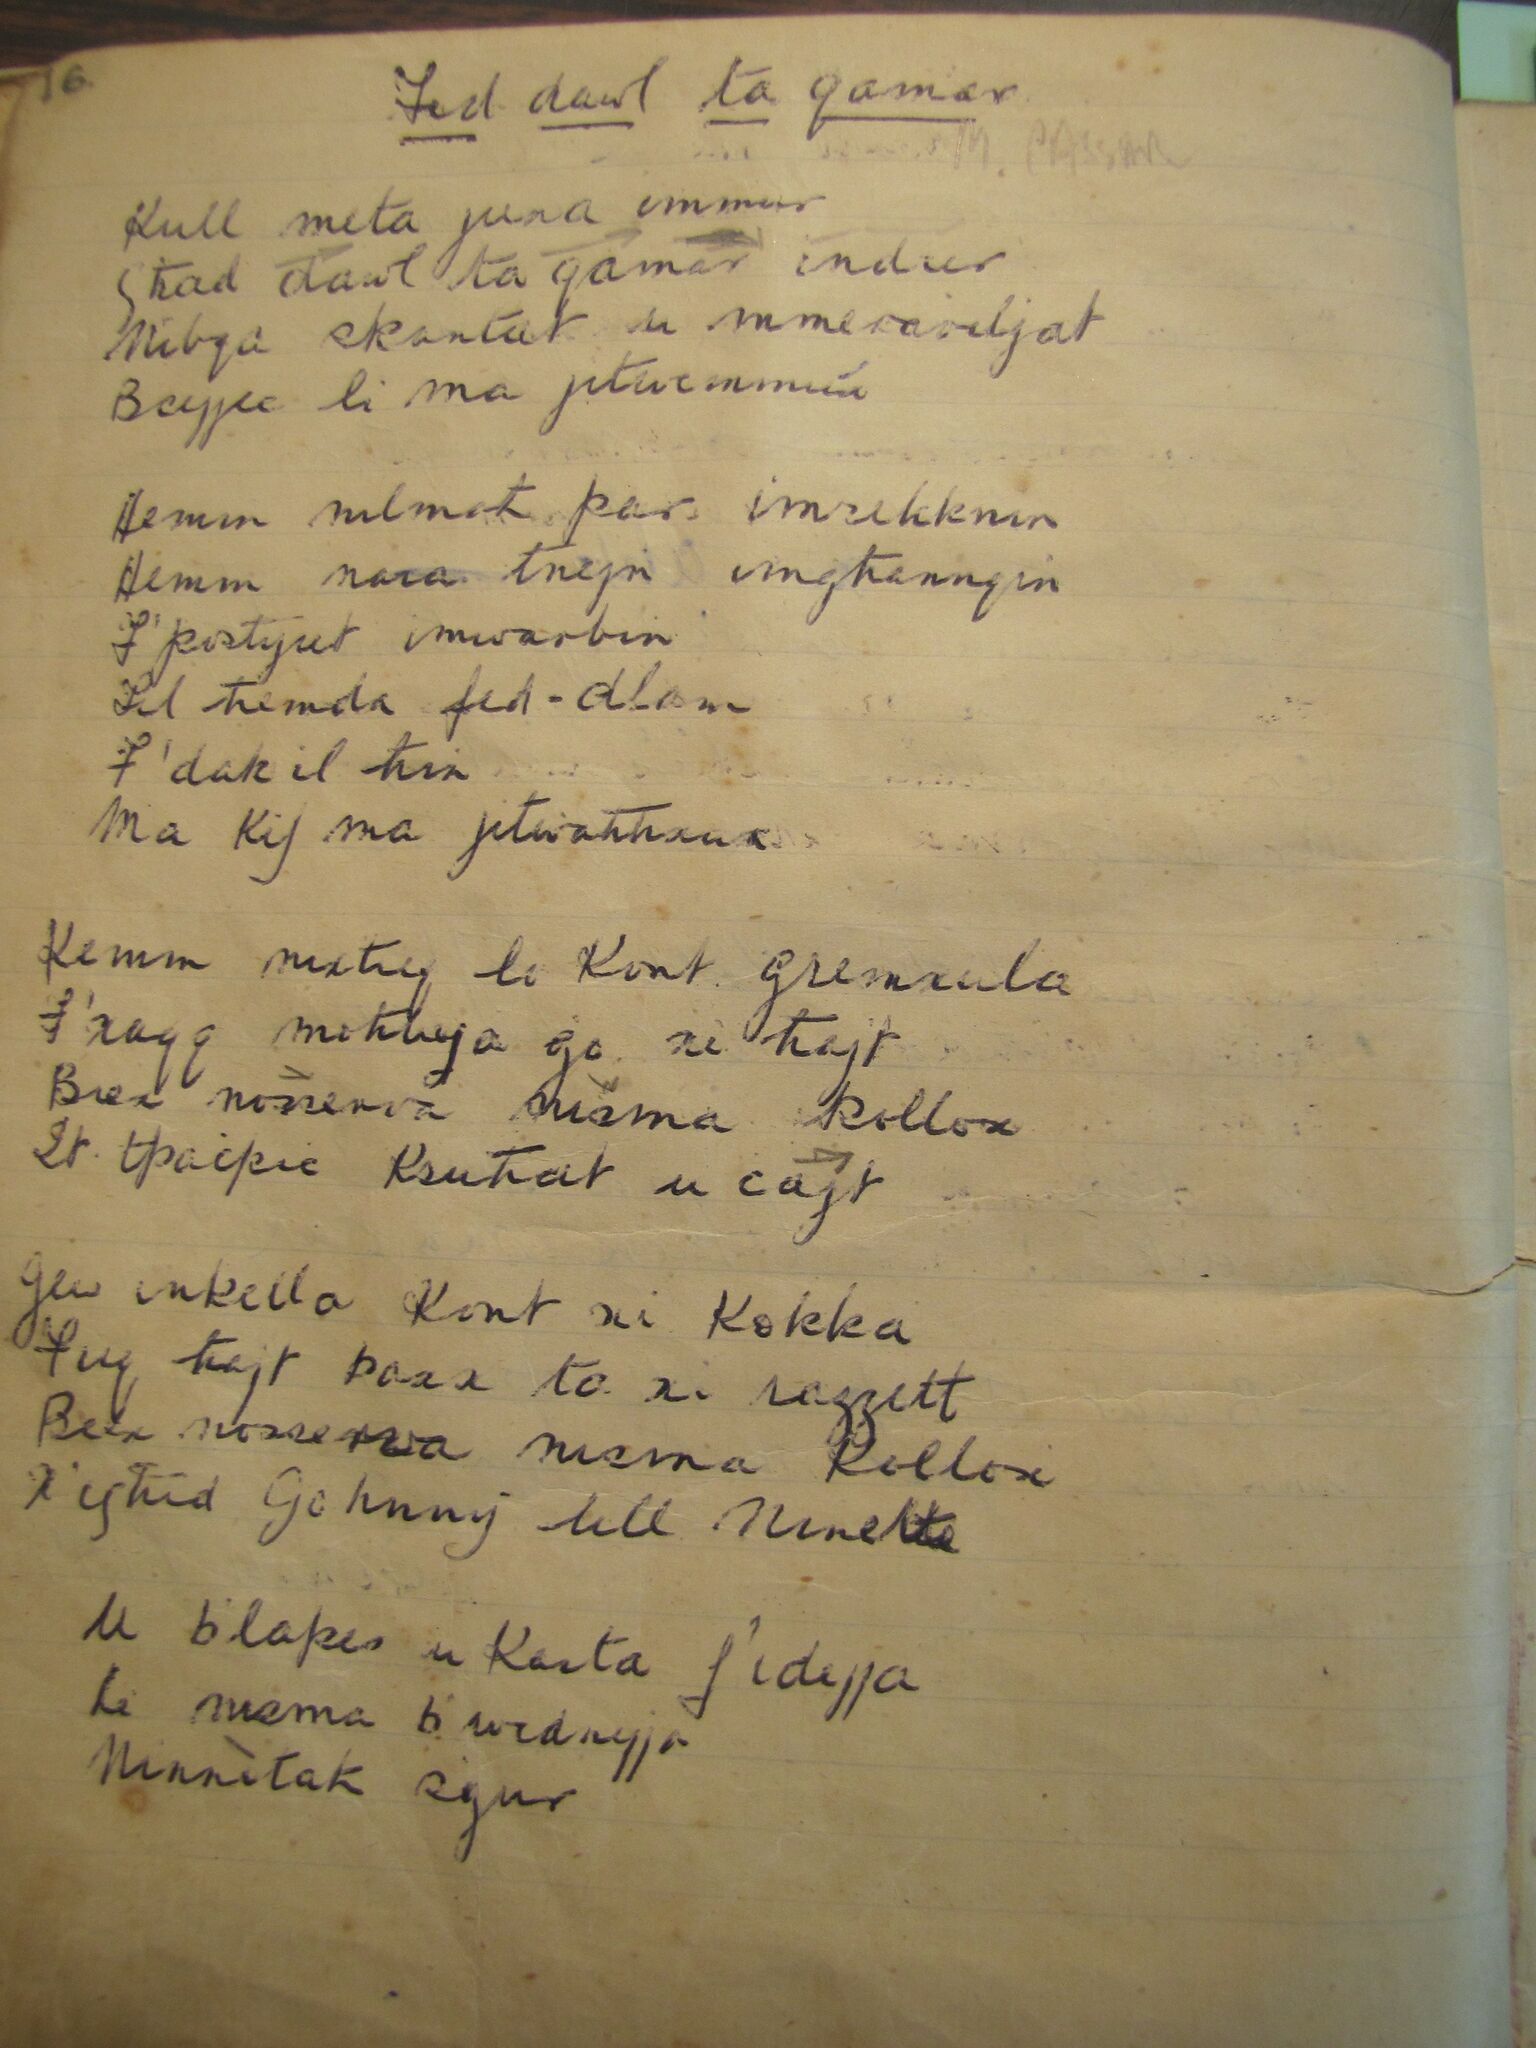 16
Fid dawl ta qamar
M. CASSAR
Kull meta jiena immur
Għad dawl ta qamar indur
Nibqa skantat u mmeraviljat
B'ejjec li ma jitwemmnu
Hemm nilmah par imrekknin
Hemm nara tnejn imgħannqin
F'postijiet imwarbin
Fil ħemda fid-dlam
F'dak il ħin
Ma kif ma jitwaħħxux
Kemm nixtieq li kont gremxula
F'xaqq moħbija go xi ħajt
Biex nosserva nisma kollox
It tpaċpic ksuħat u cajt
Jew inkella kont xi kokka
Fuq ħajt baxx ta xi razzett
Biex nosserva nisma kollox
X'igħid Gohnny lill Ninette
U b'lapes u karta f'idejja
Li nisma b'widnejja
Ninnotah zgur